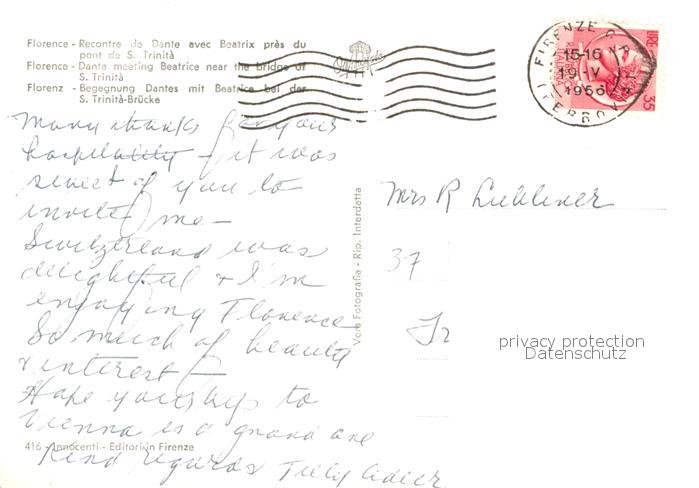 Florence - Recontre de Dante avec Beatrix près du
pont de S. Trinità
Florence - Dante meeting Beatrice near the bridge of
S. Trinità
Florenz - Begegnung Dantes mit Beatrice bei der
S. Trinità-Brücke
FIRENZE
15-16
19·V
1956
35
LIRE
Many thanks for your
hospitality - it was
sweet of you to
invite me -
Switzerland was
delightful & I'm
enjoying Florence
So much of beauty
& interest -
Hope your trip to
Vienna is a grand one
Kind regards Tilly Adler
416 - Innocenti - Editori in Firenze
Vera Fotografia - Rip. Interdetta
Mrs R
37
privacy protection
Datenschutz